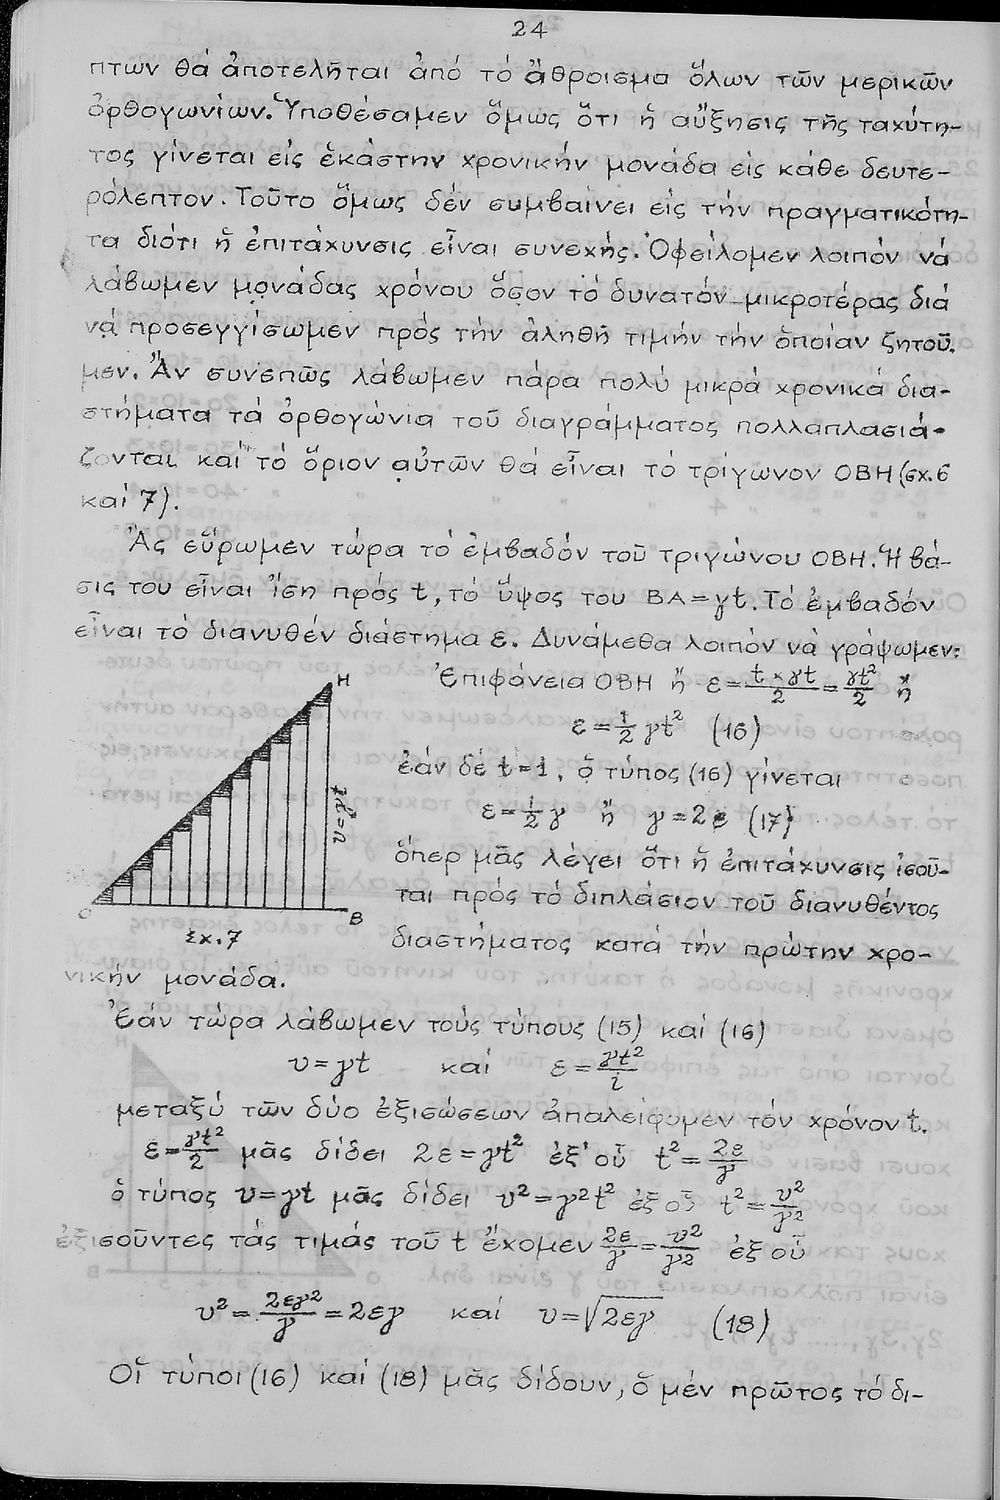 24
πτων θά ἀποτελῆται ἀπό τό ἄθροισμα ὅλων τῶν μερικῶν
ὀρθογωνίων. Ὑποθέσαμεν ὅμως ὅτι ἡ αὔξησις τῆς ταχύτη-
τος γίνεται εἰς ἑκάστην χρονικήν μονάδα εἰς κάθε δευτε-
ρόλεπτον. Τοῦτο ὅμως δέν συμβαίνει εἰς τήν πραγματικότη-
τα διότι ἡ ἐπιτάχυνσις εἶναι συνεχής. Ὀφείλομεν λοιπόν νά
λάβωμεν μονάδας χρόνου ὅσον τό δυνατόν μικροτέρας διά
νά προσεγγίσωμεν πρός τήν ἀληθῆ τιμήν τήν ὁποίαν ζητοῦ-
μεν. Ἄν συνεπῶς λάβωμεν πάρα πολύ μικρά χρονικά δια-
στήματα τά ὀρθογώνια τοῦ διαγράμματος πολλαπλασιά-
ζονται καί τό ὅριον αὐτῶν θά εἶναι τό τρίγωνον ΟΒΗ (σχ. 6
καί 7).
Ἄς εὕρωμεν τώρα τό ἐμβαδόν τοῦ τριγώνου ΟΒΗ. Ἡ βά-
σις του εἶναι ἴση πρός t, τό ὕψος του ΒΑ = γt. Τό ἐμβαδόν
εἶναι τό διανυθέν διάστημα ε. Δυνάμεθα λοιπόν νά γράψωμεν:
Ἐπιφάνεια ΟΒΗ ἤ ε = t × γt / 2 = γt² / 2 ἤ
ε = 1/2 γt² (16)
ἐάν δέ t = 1, ὁ τύπος (16) γίνεται
ε = 1/2 γ ἤ γ = 2ε (17)
ὅπερ μᾶς λέγει ὅτι ἡ ἐπιτάχυνσις ἰσοῦ-
ται πρός τό διπλάσιον τοῦ διανυθέντος
διαστήματος κατά τήν πρώτην χρο-
νικήν μονάδα.
Η
υ = γt
Ο
Β
Σχ. 7
Ἐάν τώρα λάβωμεν τούς τύπους (15) καί (16)
υ = γt καί ε = γt² / 2
μεταξύ τῶν δύο ἐξισώσεων ἀπαλείφομεν τόν χρόνον t.
ε = γt² / 2 μᾶς δίδει 2ε = γt² ἐξ' οὗ t² = 2ε / γ
ὁ τύπος υ = γt μᾶς δίδει υ² = γ²t² ἐξ οὗ t² = υ² / γ²
ἐξισοῦντες τάς τιμάς τοῦ t ἔχομεν 2ε / γ = υ² / γ² ἐξ οὗ
υ² = 2εγ² / γ = 2εγ καί υ = √2εγ (18)
Οἱ τύποι (16) καί (18) μᾶς δίδουν, ὁ μέν πρῶτος τό δι-